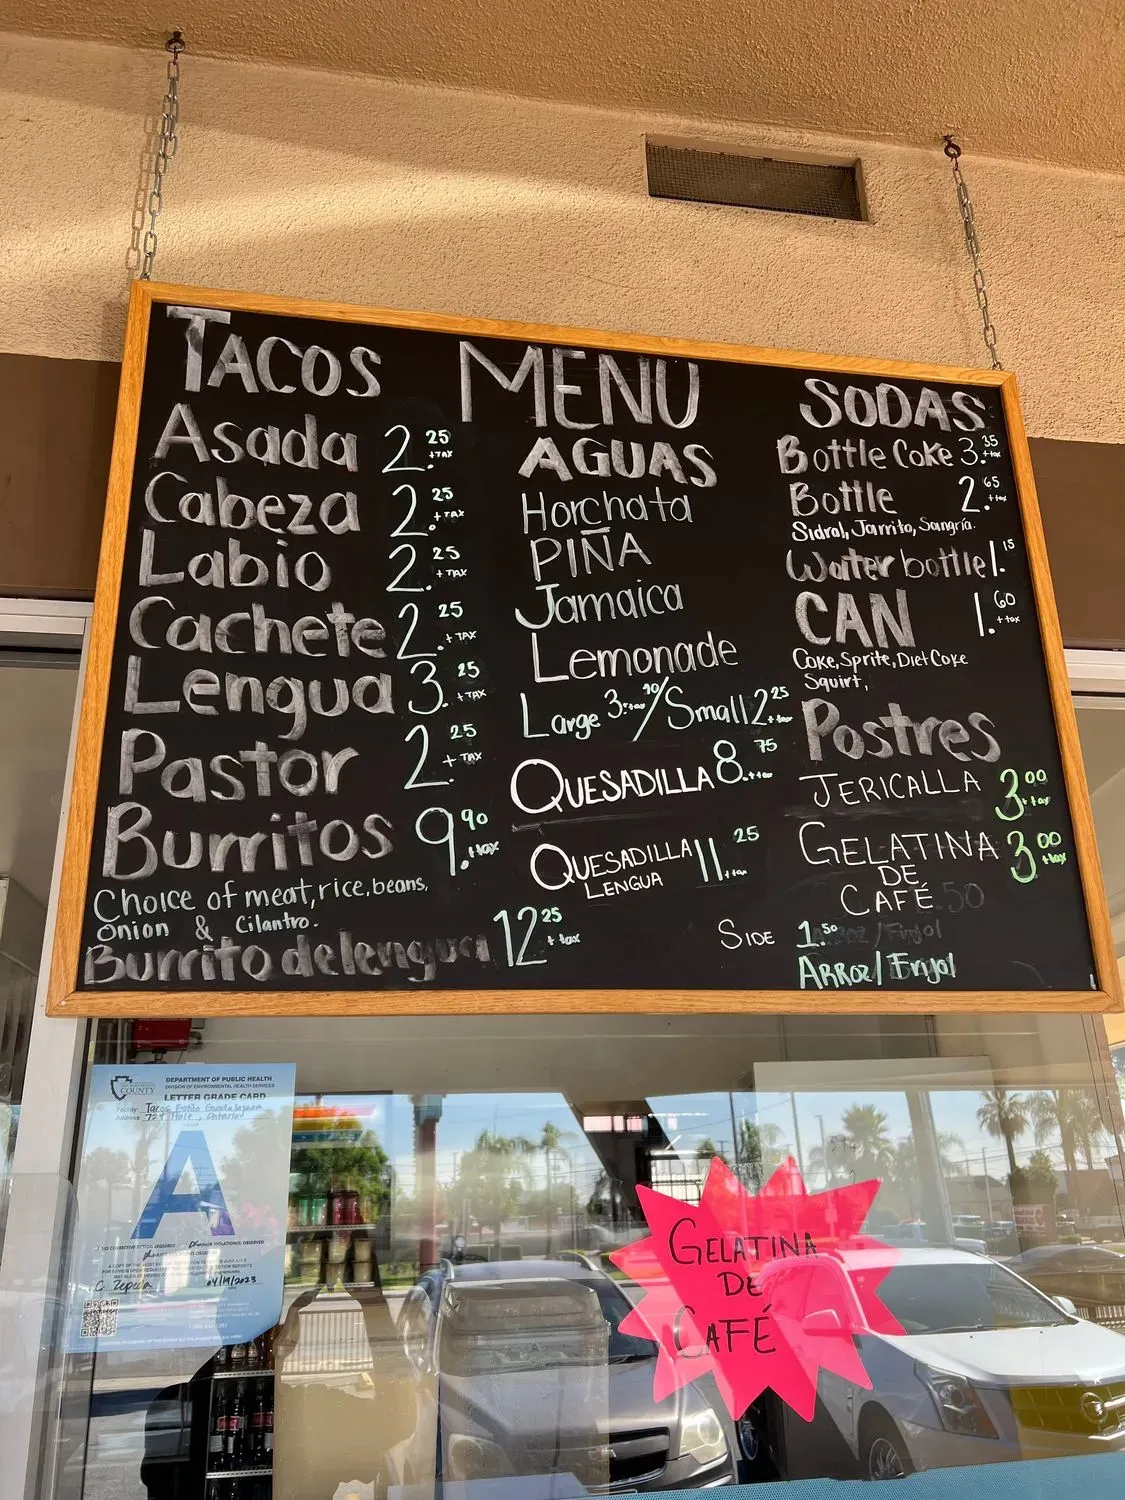 TACOS
Asada 2.25 +TAX
Cabeza 2.25 +TAX
Labio 2.25 +TAX
Cachete 2.25 +TAX
Lengua 3.25 +TAX
Pastor 2.25 +TAX
Burritos 9.90 +tax
Choice of meat, rice, beans,
Onion & Cilantro.
Burrito de lengua 12.25 +tax
MENU
AGUAS
Horchata
PIÑA
Jamaica
Lemonade
Large 3.90 +tax / Small 2.25 +tax
QUESADILLA 8.75 +tax
QUESADILLA 11.25 +tax
LENGUA
SODAS
Bottle Coke 3.35 +tax
Bottle 2.65 +tax
Sidral, Jarrito, Sangría.
Water bottle 1.15
CAN 1.60 +tax
Coke, Sprite, Diet Coke
Squirt,
Postres
JERICALLA 3.00 +tax
GELATINA 3.00 +tax
DE
CAFÉ
SIDE 1.50
ARROZ/Frijol
COUNTY
DEPARTMENT OF PUBLIC HEALTH
DIVISION OF ENVIRONMENTAL HEALTH SERVICES
LETTER GRADE CARD
Facility: Tacos Estilo Guadalajara
Address: 724 Holt, Ontario
A
C. Zepeda 04/19/2023
GELATINA
DE
CAFÉ